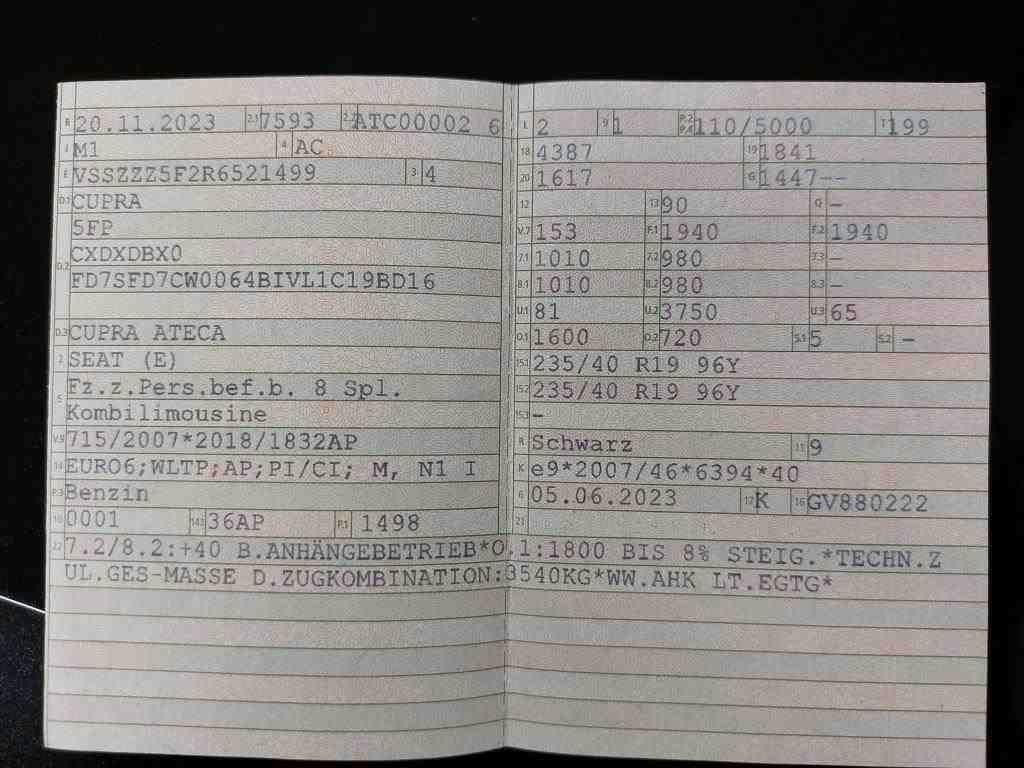 B 20.11.2023 2.1 7593 2.2 ATC00002 6
J M1 4 AC
E VSSZZZ5F2R6521499 3 4
D.1 CUPRA
D.2 5FP
CXDXDBX0
FD7SFD7CW0064BIVL1C19BD16
D.3 CUPRA ATECA
2 SEAT (E)
5 Fz.z.Pers.bef.b. 8 Spl.
Kombilimousine
V.9 715/2007*2018/1832AP
14 EURO6;WLTP;AP;PI/CI; M, N1 I
P.3 Benzin
10 0001 14.1 36AP P.1 1498
L 2 9 1 P.2 P.4 110/5000 T 199
18 4387 19 1841
20 1617 G 1447--
12 13 90 Q -
V.7 153 F.1 1940 F.2 1940
7.1 1010 7.2 980 7.3 -
8.1 1010 8.2 980 8.3 -
U.1 81 U.2 3750 U.3 65
O.1 1600 O.2 720 S.1 5 S.2 -
15.1 235/40 R19 96Y
15.2 235/40 R19 96Y
15.3 -
R Schwarz 11 9
K e9*2007/46*6394*40
6 05.06.2023 17 K 16 GV880222
21
22 7.2/8.2:+40 B.ANHÄNGEBETRIEB*O.1:1800 BIS 8% STEIG.*TECHN.Z
UL.GES-MASSE D.ZUGKOMBINATION:3540KG*WW.AHK LT.EGTG*